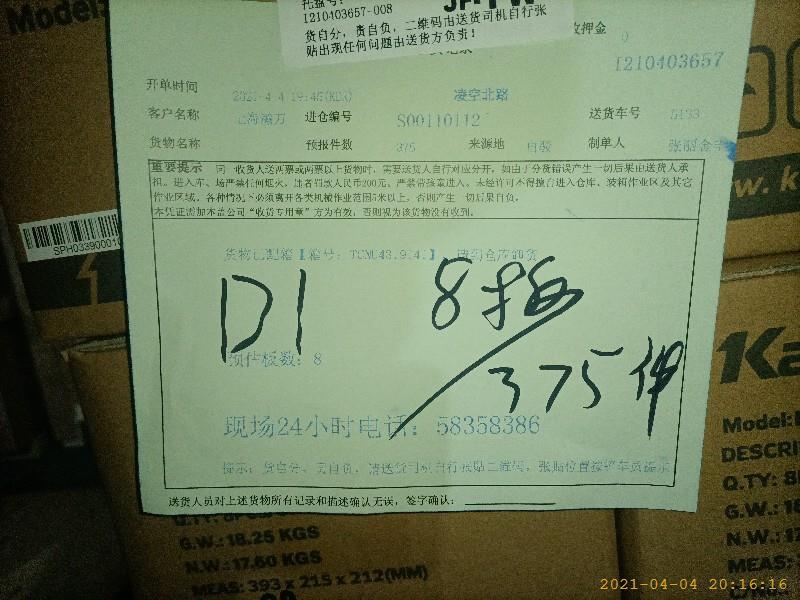 Model:
托盘号:
I210403657-008
货自分,责自负,二维码由送货司机自行张
贴出现任何问题由送货方负责!
收押金 0
I210403657
开单时间 2021-4-4 19:45 凌空北路
客户名称 进仓编号 S00110112 送货车号 5133
货物名称 预报件数 375 来源地 自毅 制单人
重要提示 同一收货人送两票或两票以上货物时,需要送货人自行对应分开,如由于分货错误产生一切后果由送货人承
担。进入库、场严禁任何烟火,违者罚款人民币200元。严禁带孩童进入。未经许可不得擅自进入仓库、装箱作业区及其它
作业区域,各种情况下必须离开各类机械作业范围5米以上,否则产生一切后果自负。
本凭证须加本盖公司“收货专用章”方为有效,否则视为该货物没有收到。
SPH0339000
货物已配箱【箱号:
D1 8板
预估板数: 8
375件
现场24小时电话: 58358386
提示: 货自分、责自负,请送货司机自行张贴二维码,张贴位置按
送货人员对上述货物所有记录和描述确认无误,签字确认:
G.W.: 18.25 KGS
N.W.: 17.60 KGS
MEAS: 393 x 215 x 212(MM)
Ka
Model:
DESCRI
Q.TY:
G.W.:
N.W.:
MEAS:
2021-04-04 20:16:16